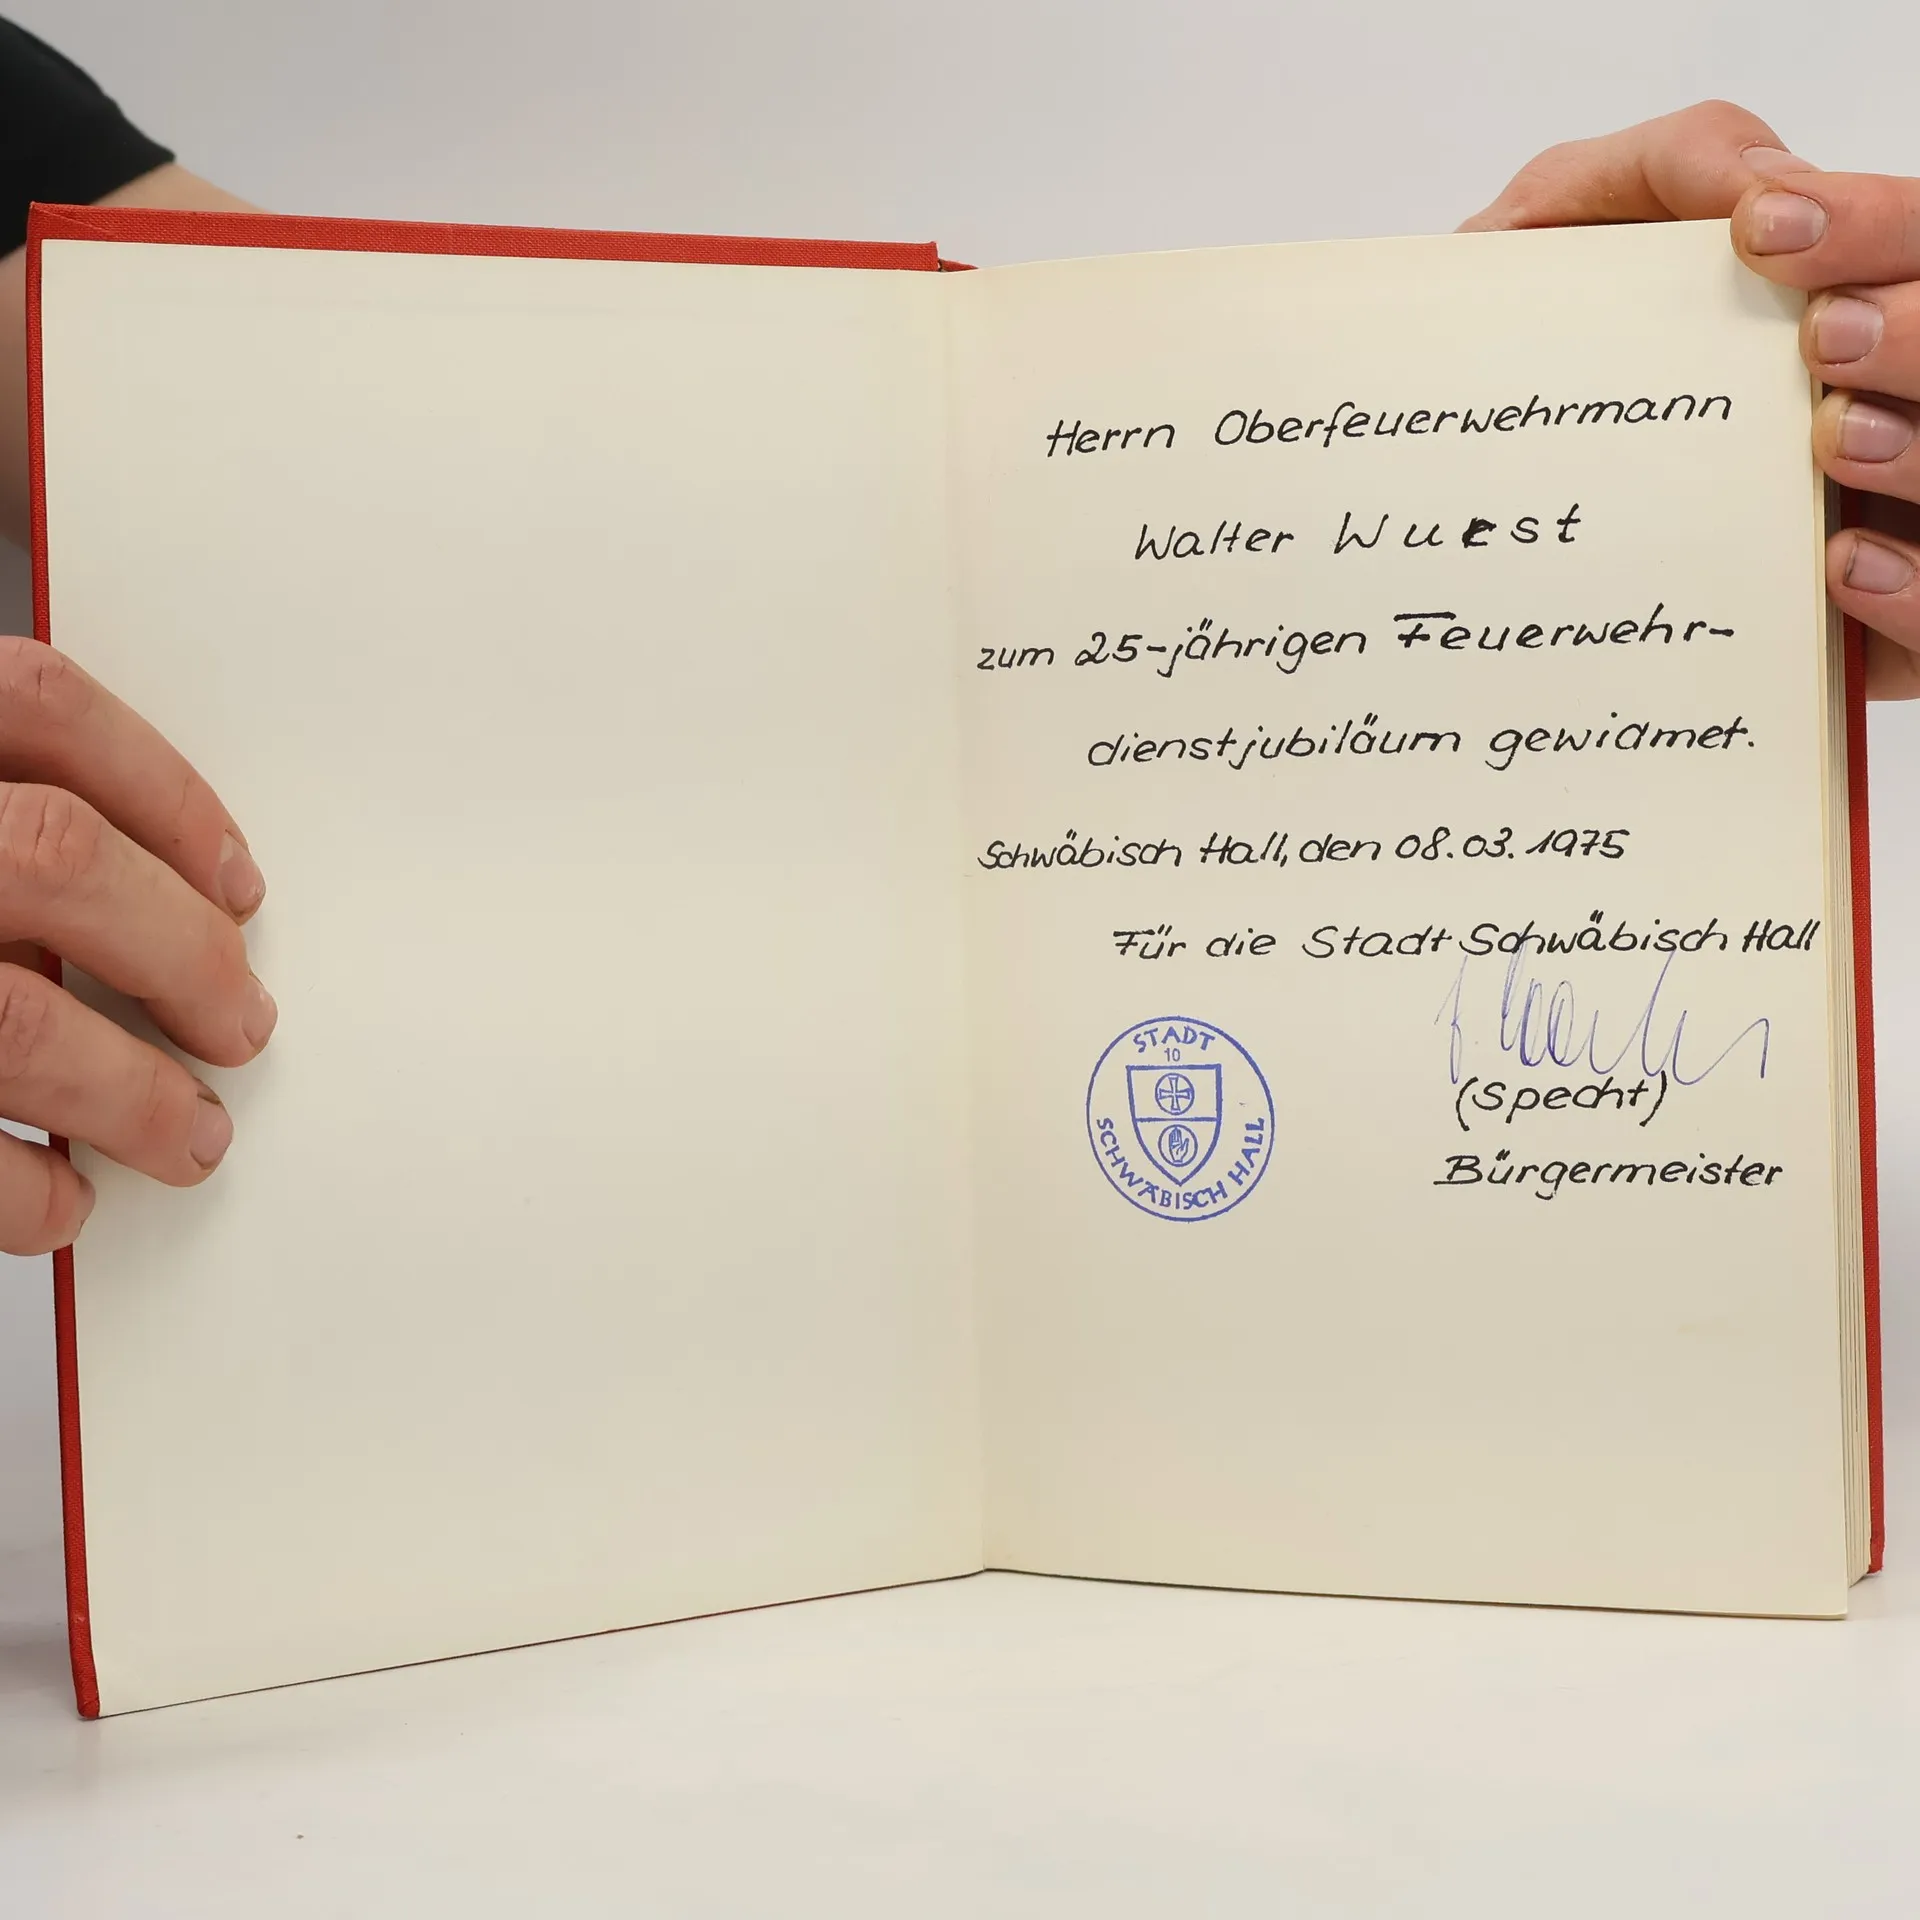 Herrn Oberfeuerwehrmann
Walter Wuest
zum 25-jährigen Feuerwehr-
dienstjubiläum gewidmet.
Schwäbisch Hall, den 08.03.1975
Für die Stadt Schwäbisch Hall
STADT
10
SCHWÄBISCH HALL
(Specht)
Bürgermeister